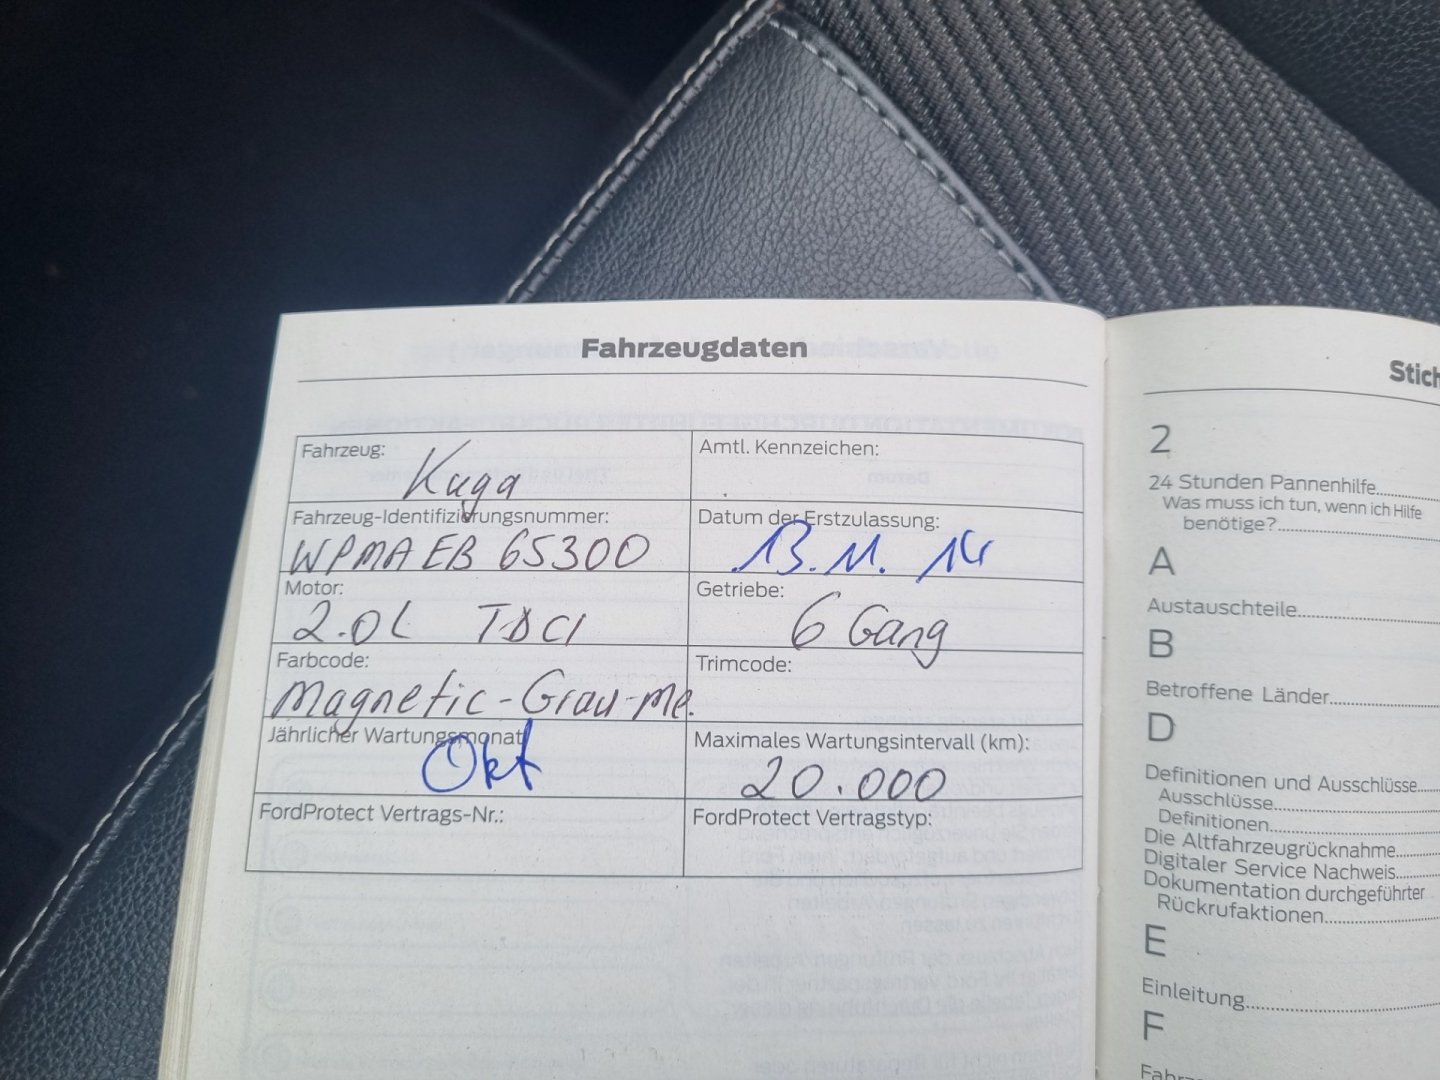 Fahrzeugdaten
Fahrzeug: Kuga
Amtl. Kennzeichen:
Fahrzeug-Identifizierungsnummer:
WPMAEB 65300
Datum der Erstzulassung:
13.11.14
Motor:
2.0L TDCI
Getriebe:
6 Gang
Farbcode:
Magnetic-Grau-Me.
Trimcode:
Jährlicher Wartungsmonat
Okt
Maximales Wartungsintervall (km):
20.000
FordProtect Vertrags-Nr.:
FordProtect Vertragstyp:
Stich
2
24 Stunden Pannenhilfe
Was muss ich tun, wenn ich Hilfe
benötige?
A
Austauschteile
B
Betroffene Länder
D
Definitionen und Ausschlüsse
Ausschlüsse
Definitionen
Die Altfahrzeugrücknahme
Digitaler Service Nachweis
Dokumentation durchgeführter
Rückrufaktionen
E
Einleitung
F